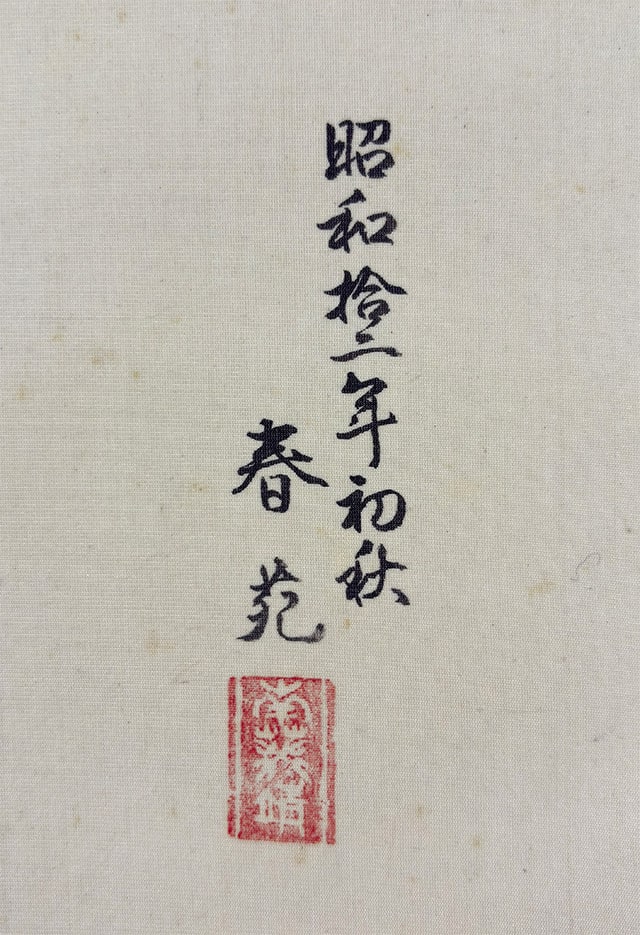 昭和拾二年初秋
春苑